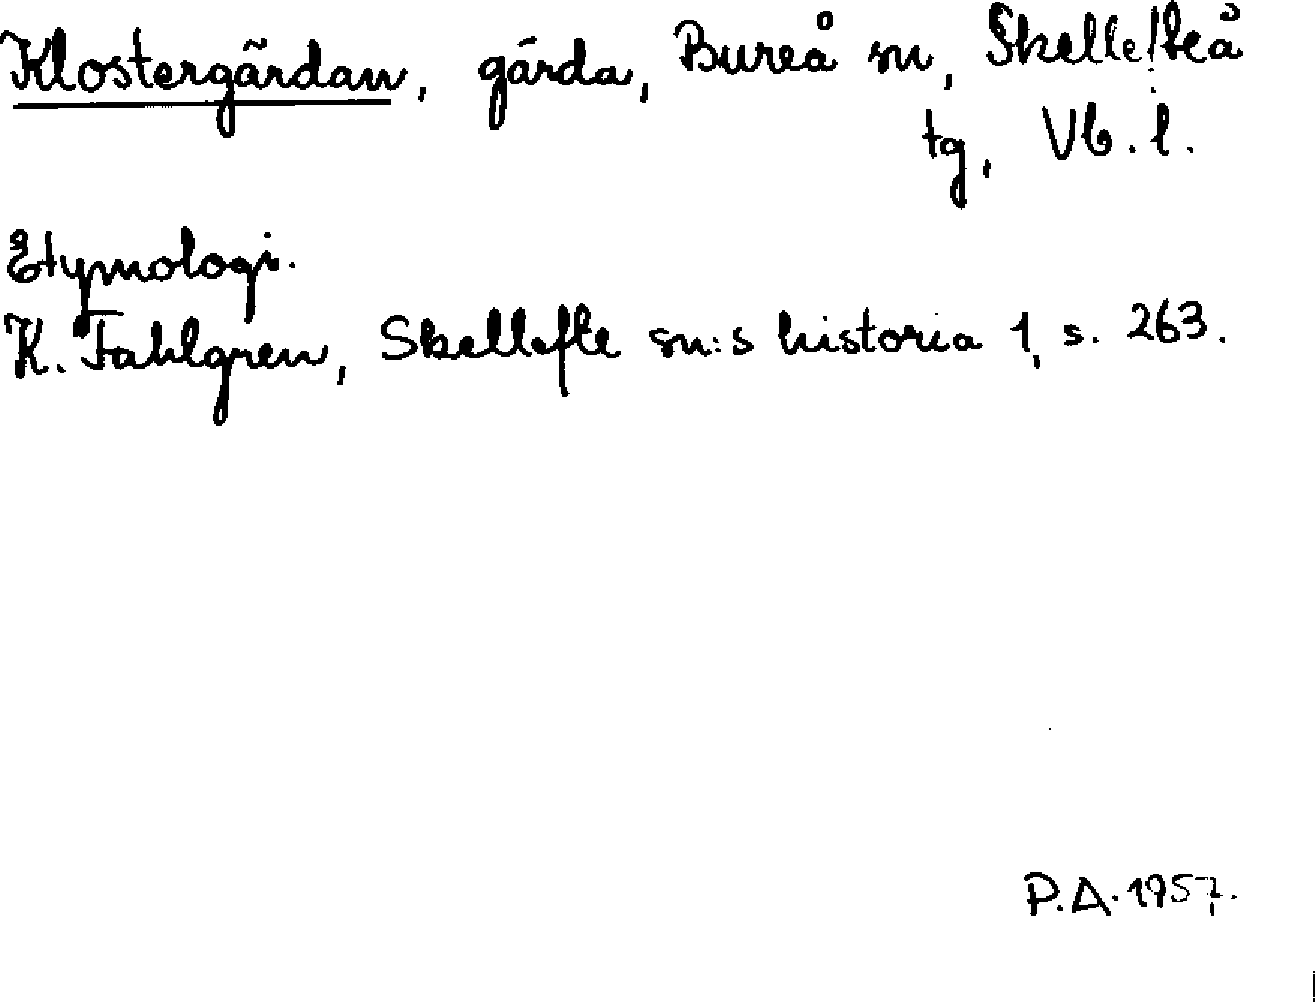 Klostergärdan, gärda, Bureå sn, Skellefteå
tg, Vb. l.
Etymologi.
K. Fahlgren, Skellefte sn:s historia 1, s. 263.
P.A. 1957.